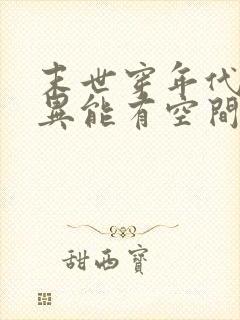 末世穿年代
異能有空間
甜西寶